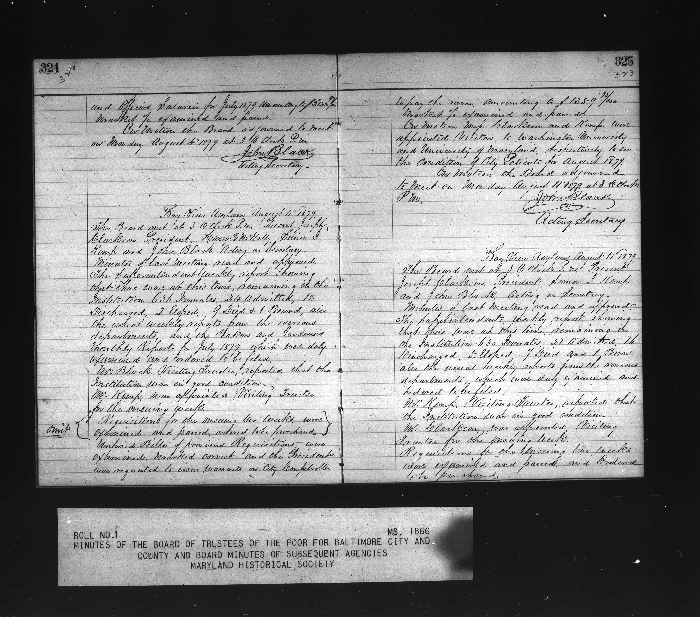 324
and Officers Salaries for July 1879 amounting to
marked &c examined and passed.
On Motion the Board adjourned to meet
on Monday August 4th 1879 at 3 O'Clock P.M.
John Black
Acting Secretary.
Bay View Asylum August 4th 1879
The Board met at 3 O'Clock P.M. Present Joseph
Clarkson President,
Kemp and John Black Acting as Secretary
Minutes of last meeting read and approved
The Superintendents weekly report showing
that there was at this time, remaining in the
Institution Inmates, Admitted, 12
Discharged, 2 Eloped, 9 Died & 1 Bound, also
the usual weekly reports from the various
departments, and the Matrons and
Monthly Reports for July 1879 which were duly
examined and ordered to be filed.
Mr. Black Visiting Trustee, reported that the
Institution was in good condition.
Mr. Kemp was appointed Visiting Trustee
for the ensuing week.
omit
Requisitions for the ensuing two weeks were
examined and passed, ordered to be purchased
of previous Requisitions were
examined, marked correct and the President
was requested to issue warrants on City Comptroller
325
323
to pay the same, amounting to $
marked &c examined and passed.
On motion Mess. Clarkson and Kemp were
appointed Visitors to Washington University
and University of Maryland, respectively to see
the condition of City Patients for August 1879.
On Motion the Board adjourned
to meet on Monday August 11 1879 at 3 O'Clock
P.M.
John Black
Acting Secretary
Bay View Asylum August 11th 1879
The Board met at 3 O'Clock P.M. Present
Joseph Clarkson, President, Simon J. Kemp
and John Black, Acting as Secretary.
Minutes of last meeting read and approved
The Superintendents weekly report showing
that there was at this time, remaining in
the Institution Inmates, 21 Admitted, 16
Discharged, 2 Eloped, 7 Died and 1 Born
also the usual weekly reports from the various
departments, which were duly examined and
ordered to be filed.
Mr. Kemp, Visiting Trustee, reported that
the Institution was in good condition
Mr. Clarkson, was appointed Visiting
Trustee for the ensuing week.
Requisitions for the ensuing two weeks
were examined and passed and Ordered
to be purchased.
ROLL NO.1 MS. 1866
MINUTES OF THE BOARD OF TRUSTEES OF THE POOR FOR BALTIMORE CITY AND
COUNTY AND BOARD MINUTES OF SUBSEQUENT AGENCIES
MARYLAND HISTORICAL SOCIETY